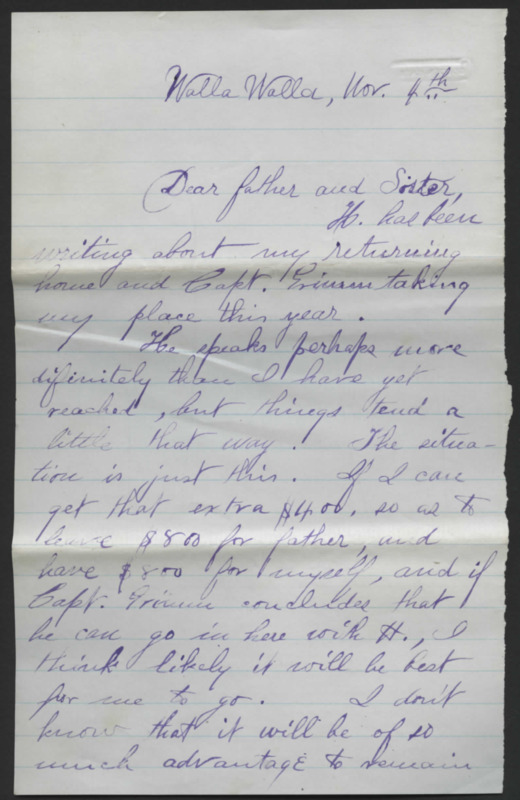 Walla Walla, Nov. 4th
Dear father and Sister,
H. has been
writing about my returning
home and Capt. Grimm taking
my place this year.
He speaks perhaps more
difinitely than I have yet
reached, but things tend a
little that way. The situa-
tion is just this. If I can
get that extra $400. so as to
leave $800 for father, and
have $800 for myself, and if
Capt. Grimm concludes that
he can go in here with H., I
think likely it will be best
for me to go. I don't
know that it will be of so
much advantage to remain